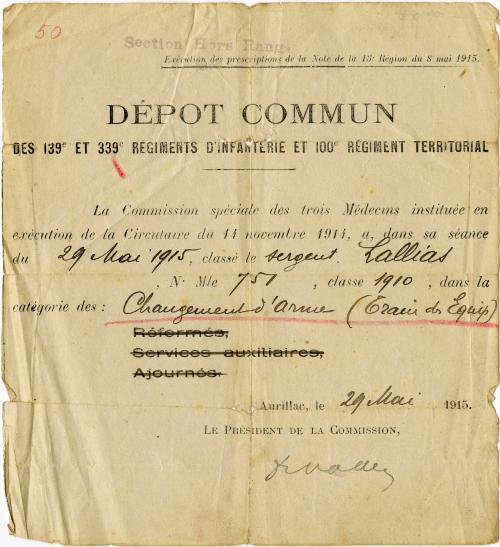 50
Section Hors Rang
Exécution des prescriptions de la Note de la 13e Région du 8 mai 1915.
DÉPOT COMMUN
DES 139e ET 339e RÉGIMENTS D'INFANTERIE ET 100e RÉGIMENT TERRITORIAL
La Commission spéciale des trois Médecins instituée en
exécution de la Circulaire du 14 novembre 1914, a, dans sa séance
du 29 Mai 1915, classé le sergent Lallias
, N° Mle 751, classe 1910, dans la
catégorie des : Changement d'arme (Train des Equip)
Réformés,
Services auxiliaires,
Ajournés.
Aurillac, le 29 Mai 1915.
LE PRÉSIDENT DE LA COMMISSION,